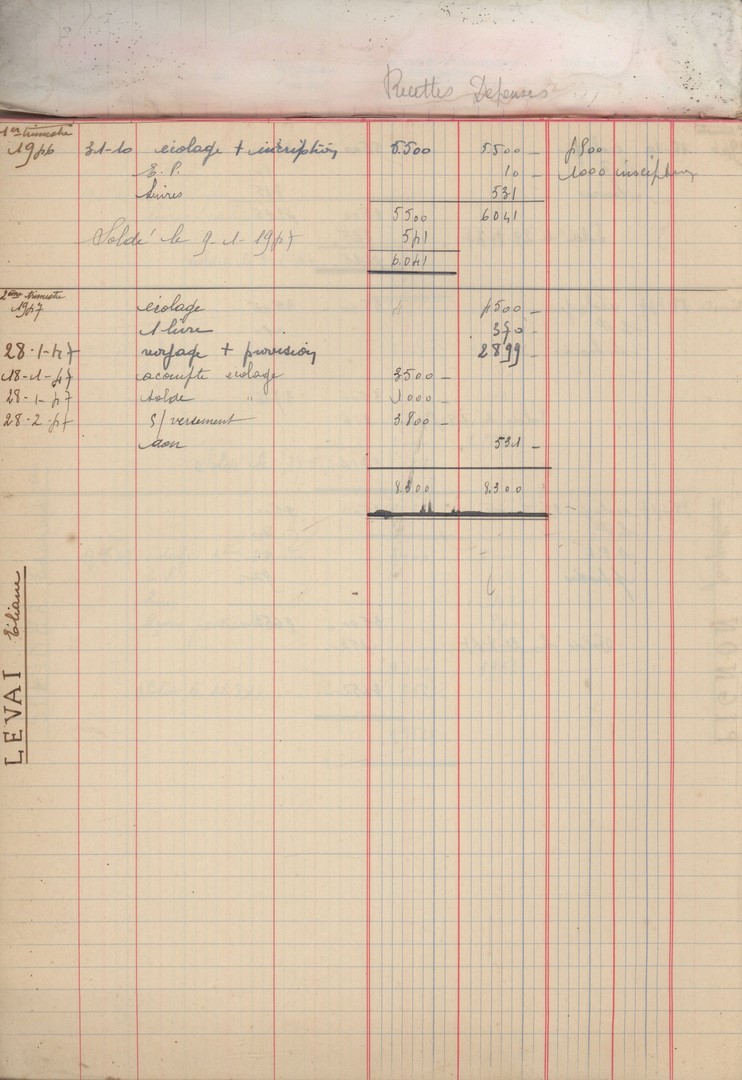 Recettes Dépenses
1er trimestre
1946 31-10 écolage + inscription 5.500 5500 - 4500
E. P. 10 - 1000 inscription
livres 531
5500 6041
Soldé le 9-1-1947 541
6.041
2ème trimestre
1947 écolage 4500 -
1 livre 370 -
28-1-47 + provision 2899 -
18-1-47 acompte écolage 3500 -
28-1-47 solde " 1000 -
28-2-47 s/versement 3.800 -
don 531 -
8.300 8.300
LEVAI Eliane